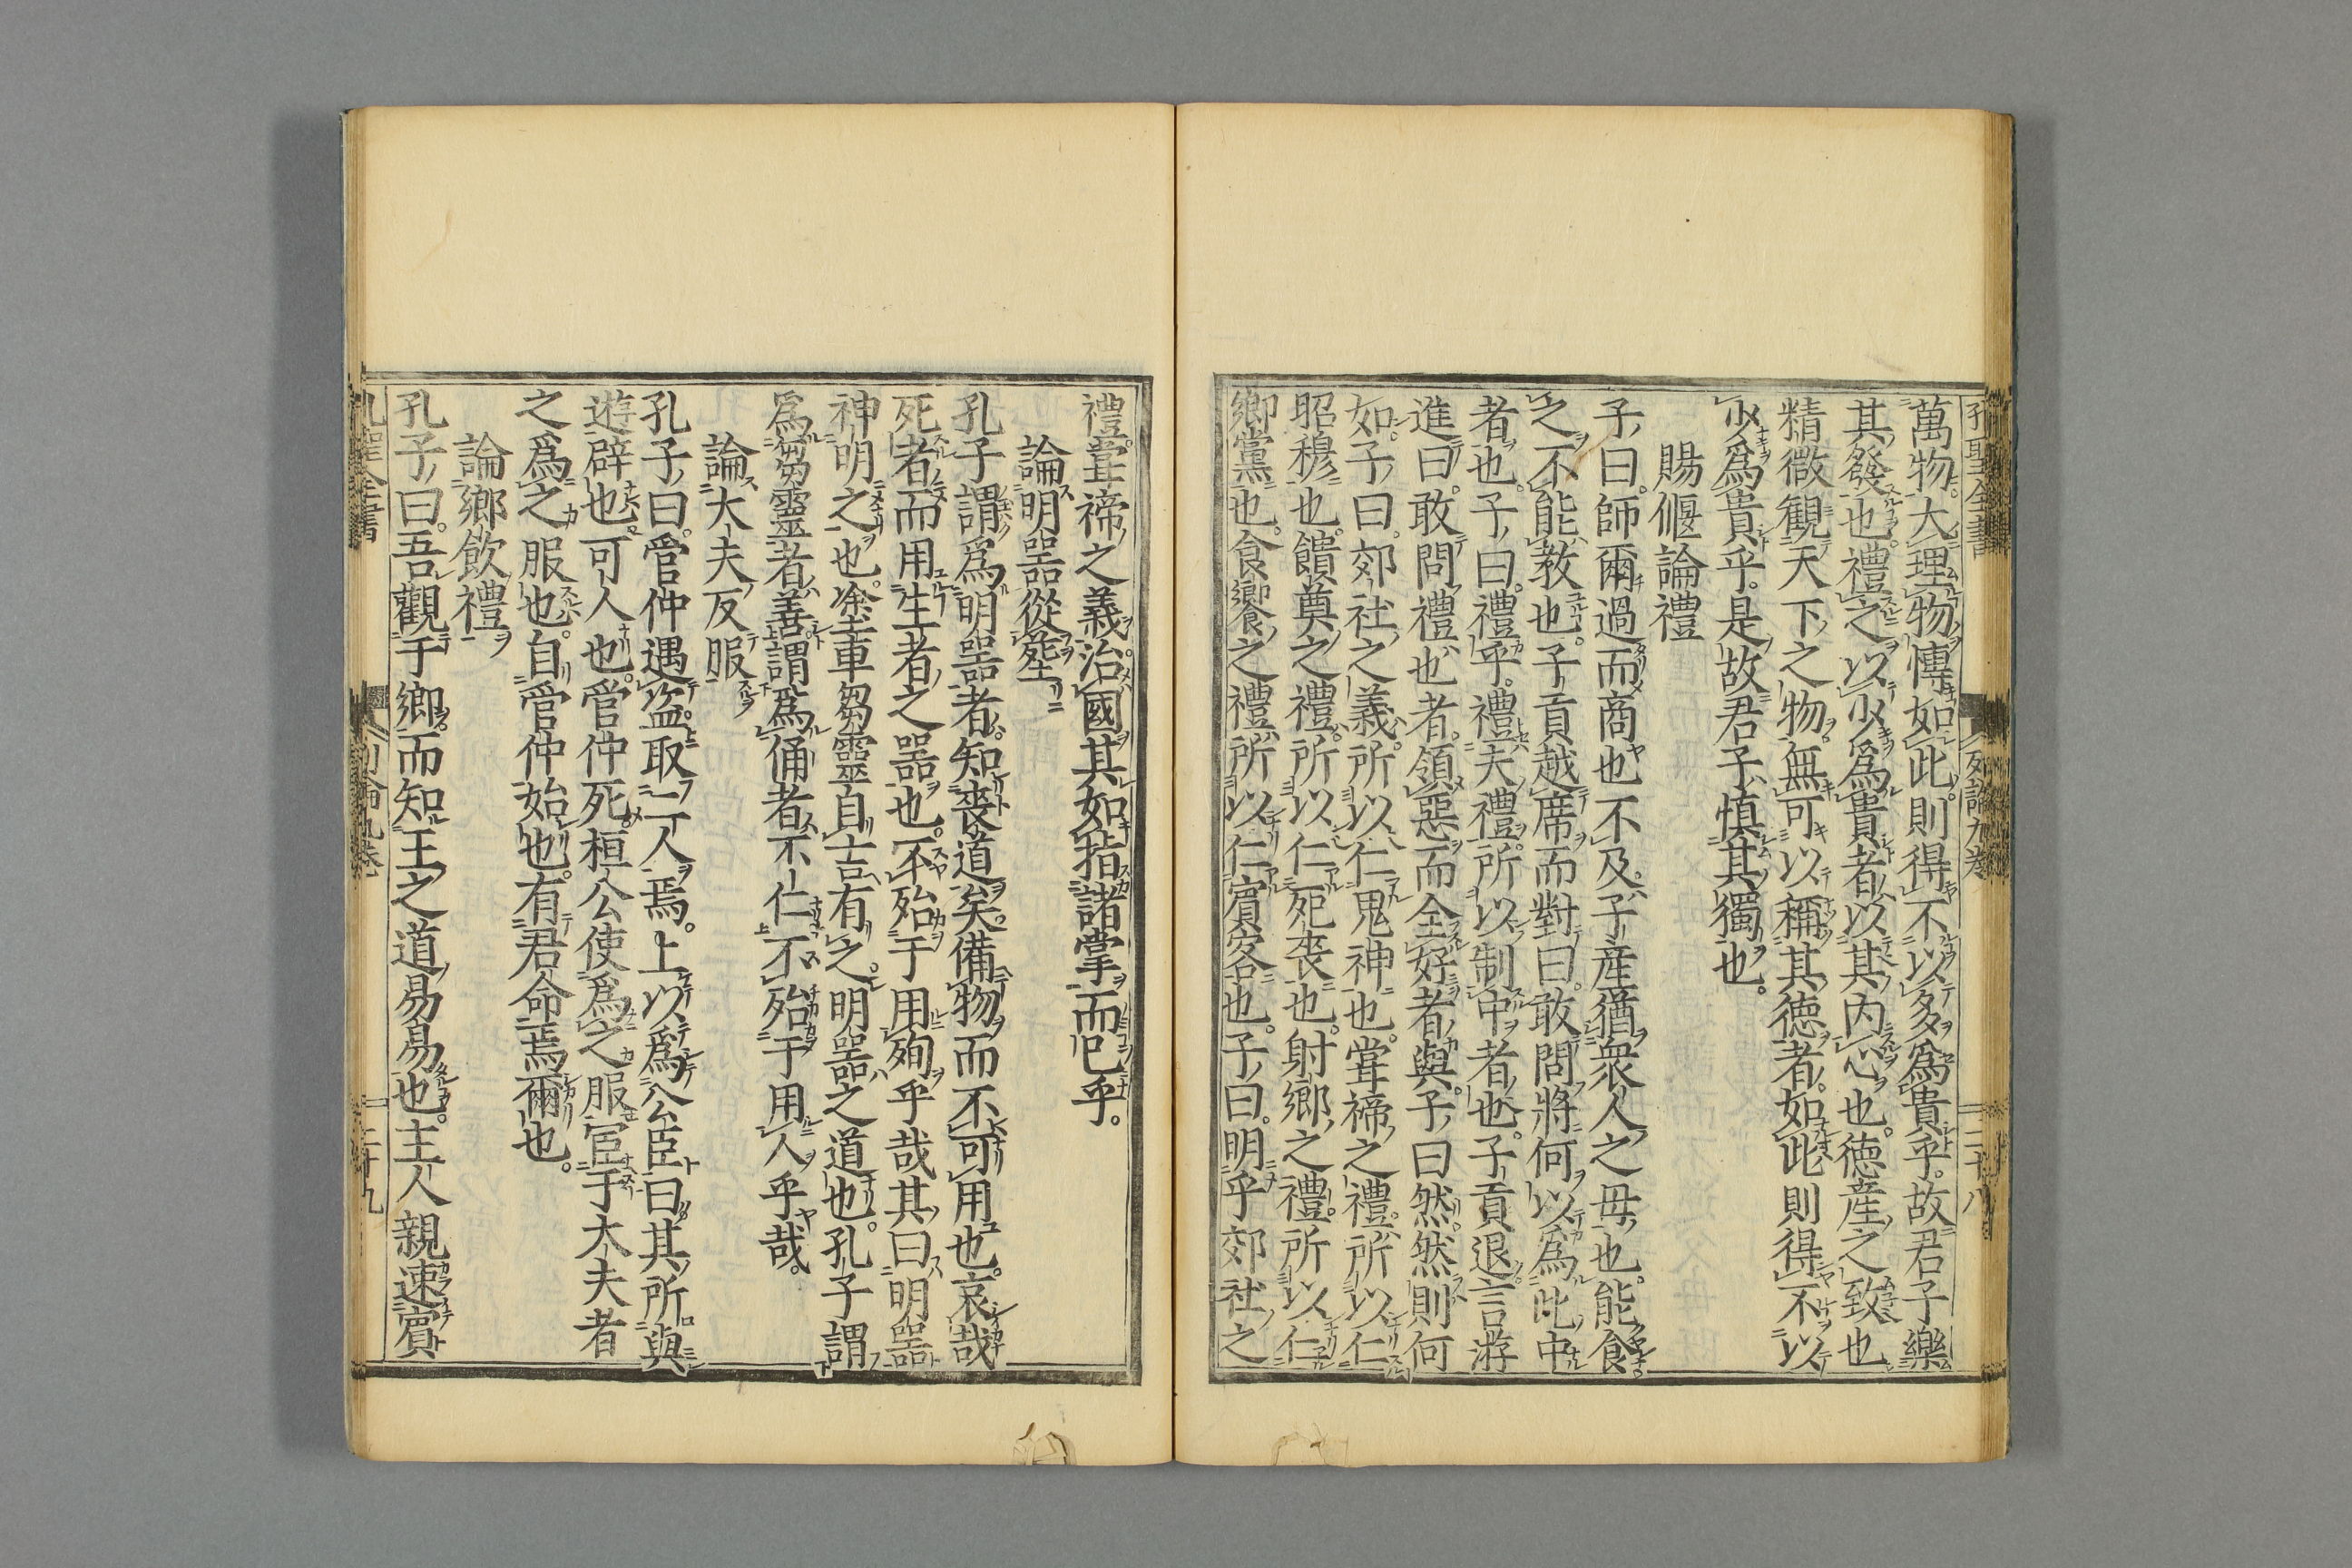 孔聖全書
列論九卷
二十八
萬物大理物博如此則得不以多爲貴乎故君子樂
其發也禮之以少爲貴者以其内心也德産之致也
精微觀天下之物無可以稱其德者如此則得不以
少爲貴乎是故君子愼其獨也
賜偃論禮
子曰師爾過而商也不及子産猶衆人之母也能食
之不能敎也子貢越席而對曰敢問將何以爲此中
者也子曰禮乎禮夫禮所以制中者也子貢退言游
進曰敢問禮也者領惡而全好者與子曰然然則何
如子曰郊社之義所以仁鬼神也嘗禘之禮所以仁
昭穆也饋奠之禮所以仁死喪也射鄉之禮所以仁
鄉黨也食饗之禮所以仁賓客也子曰明乎郊社之
禮嘗禘之義治國其如指諸掌而已乎
論明器從葬
孔子謂爲明器者知喪道矣備物而不可用也哀哉
死者而用生者之器也不殆于用殉乎哉其曰明器
神明之也塗車芻靈自古有之明器之道也孔子謂
爲芻靈者善謂爲俑者不仁不殆于用人乎哉
論大夫反服
孔子曰管仲遇盜取二人焉上以爲公臣曰其所與
遊辟也可人也管仲死桓公使爲之服宦于大夫者
之爲之服也自管仲始也有君命焉爾也
論鄉飲禮
孔子曰吾觀于鄉而知王之道易易也主人親速賓
孔聖全書
列論九卷
二十九